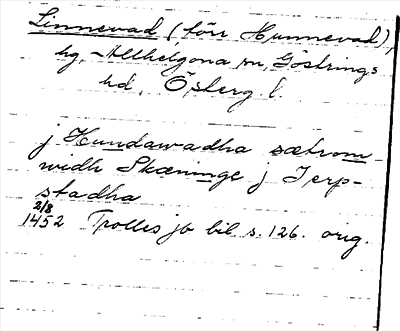 Linnevad (förr Hunnevad),
hg, Allhelgona sn, Göstrings
hd, Österg. l.
j Hundawadha sætrom
widh Skæninge j Jerp-
stadha
2/8
1452 Trolles jb bil s. 126. orig.